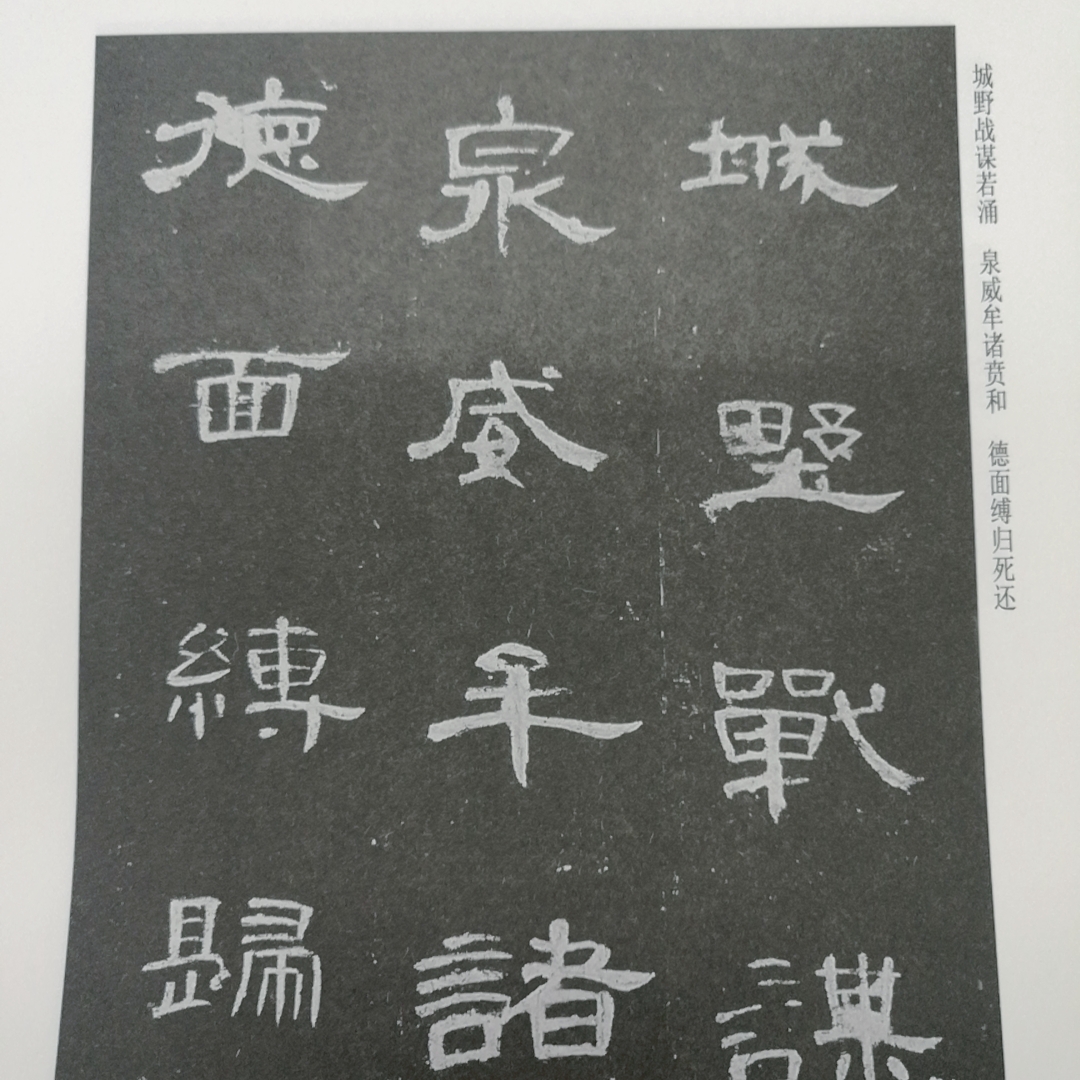 城野战谋若涌 泉威牟诸贲和 德面缚归死还
城墅戰謀
泉威牟諸
德面縛歸